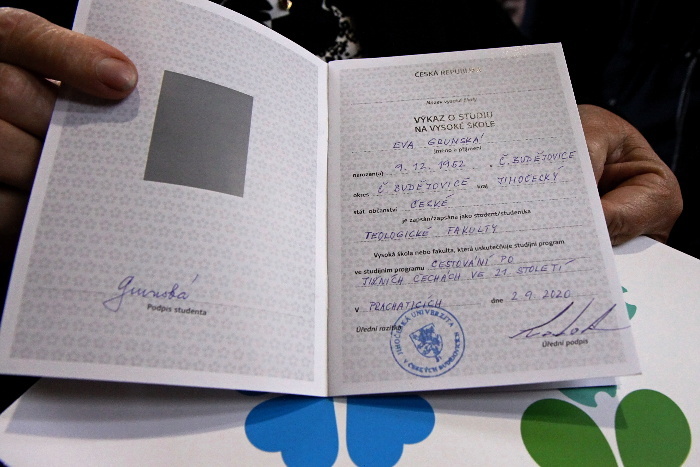 Grunská
Podpis studenta
ČESKÁ REPUBLIKA
Název vysoké školy
VÝKAZ O STUDIU
NA VYSOKÉ ŠKOLE
EVA GRUNSKÁ
(jméno a příjmení)
narozen(a) 9. 12. 1952 v Č. BUDĚJOVICE
okres Č BUDĚJOVICE kraj JIHOČESKÝ
stát. občanství ČESKÉ
je zapsán/zapsána jako student/studentka
TEOLOGICKÉ FAKULTY
Vysoká škola nebo fakulta, která uskutečňuje studijní program
ve studijním programu CESTOVÁNÍ PO
JIŽNÍCH ČECHÁCH VE 21. STOLETÍ
V PRACHATICÍCH dne 2. 9. 2020
Úřední razítko
Úřední podpis
JIHOČESKÁ UNIVERZITA
V ČESKÝCH BUDĚJOVICÍCH